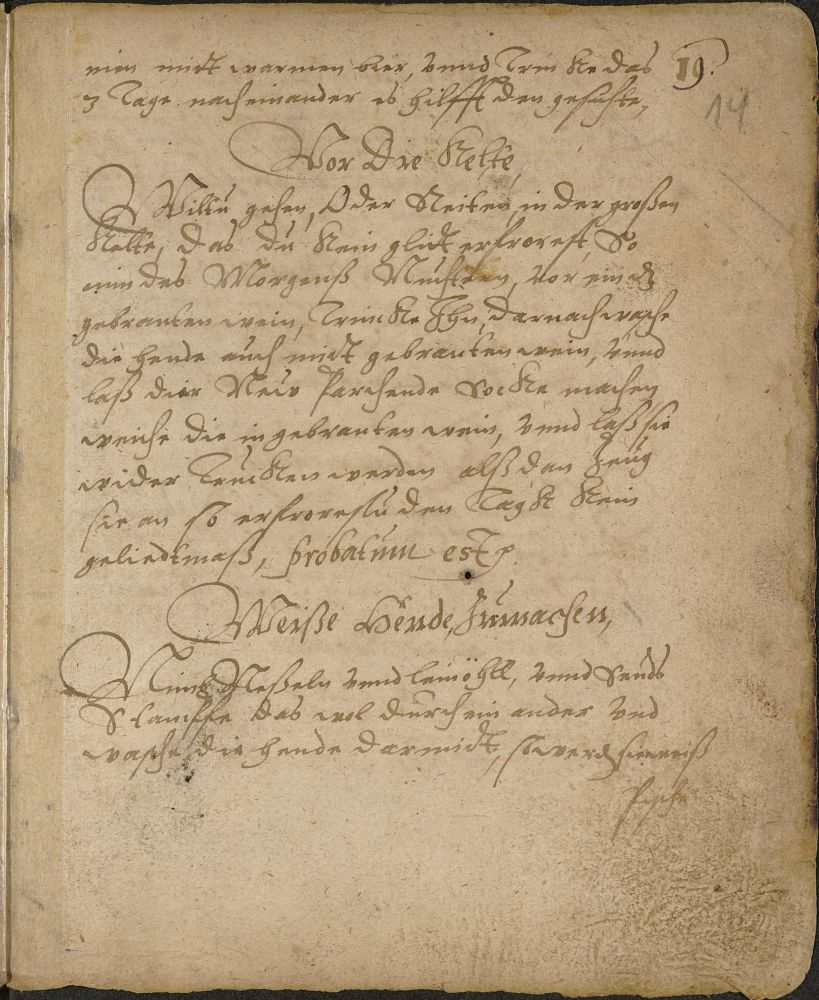 mein midt warmen bier, vnnd Trincke das 19.
3 Tage nacheinander es hilfft den gesuchte, 14
Vor Die Kelte,
Wiltu gehen, Oder Reiten, in der großen
Kelte, das du Kein gliedt erfrorest, So
nim des Morgenß Muschaten, vor ein
gebranten wein, Trincke Ihn, darnach wasche
die hende auch midt gebranten wein, vnnd
laß dier New Parchende Socke machen
weiche die in gebranten wein, vnnd laß sie
wider Trucken werden alß dan Zeug
sie an so erfrorestu den Tagk Kein
geliedtmaß, probatum est
Weiße Hende, Zumachen,
Nimb Neßeln vnnd leinöhll, vnnd
Stampffe das wol durch ein ander vnd
wasche die hende darmidt, so werden sie weiß